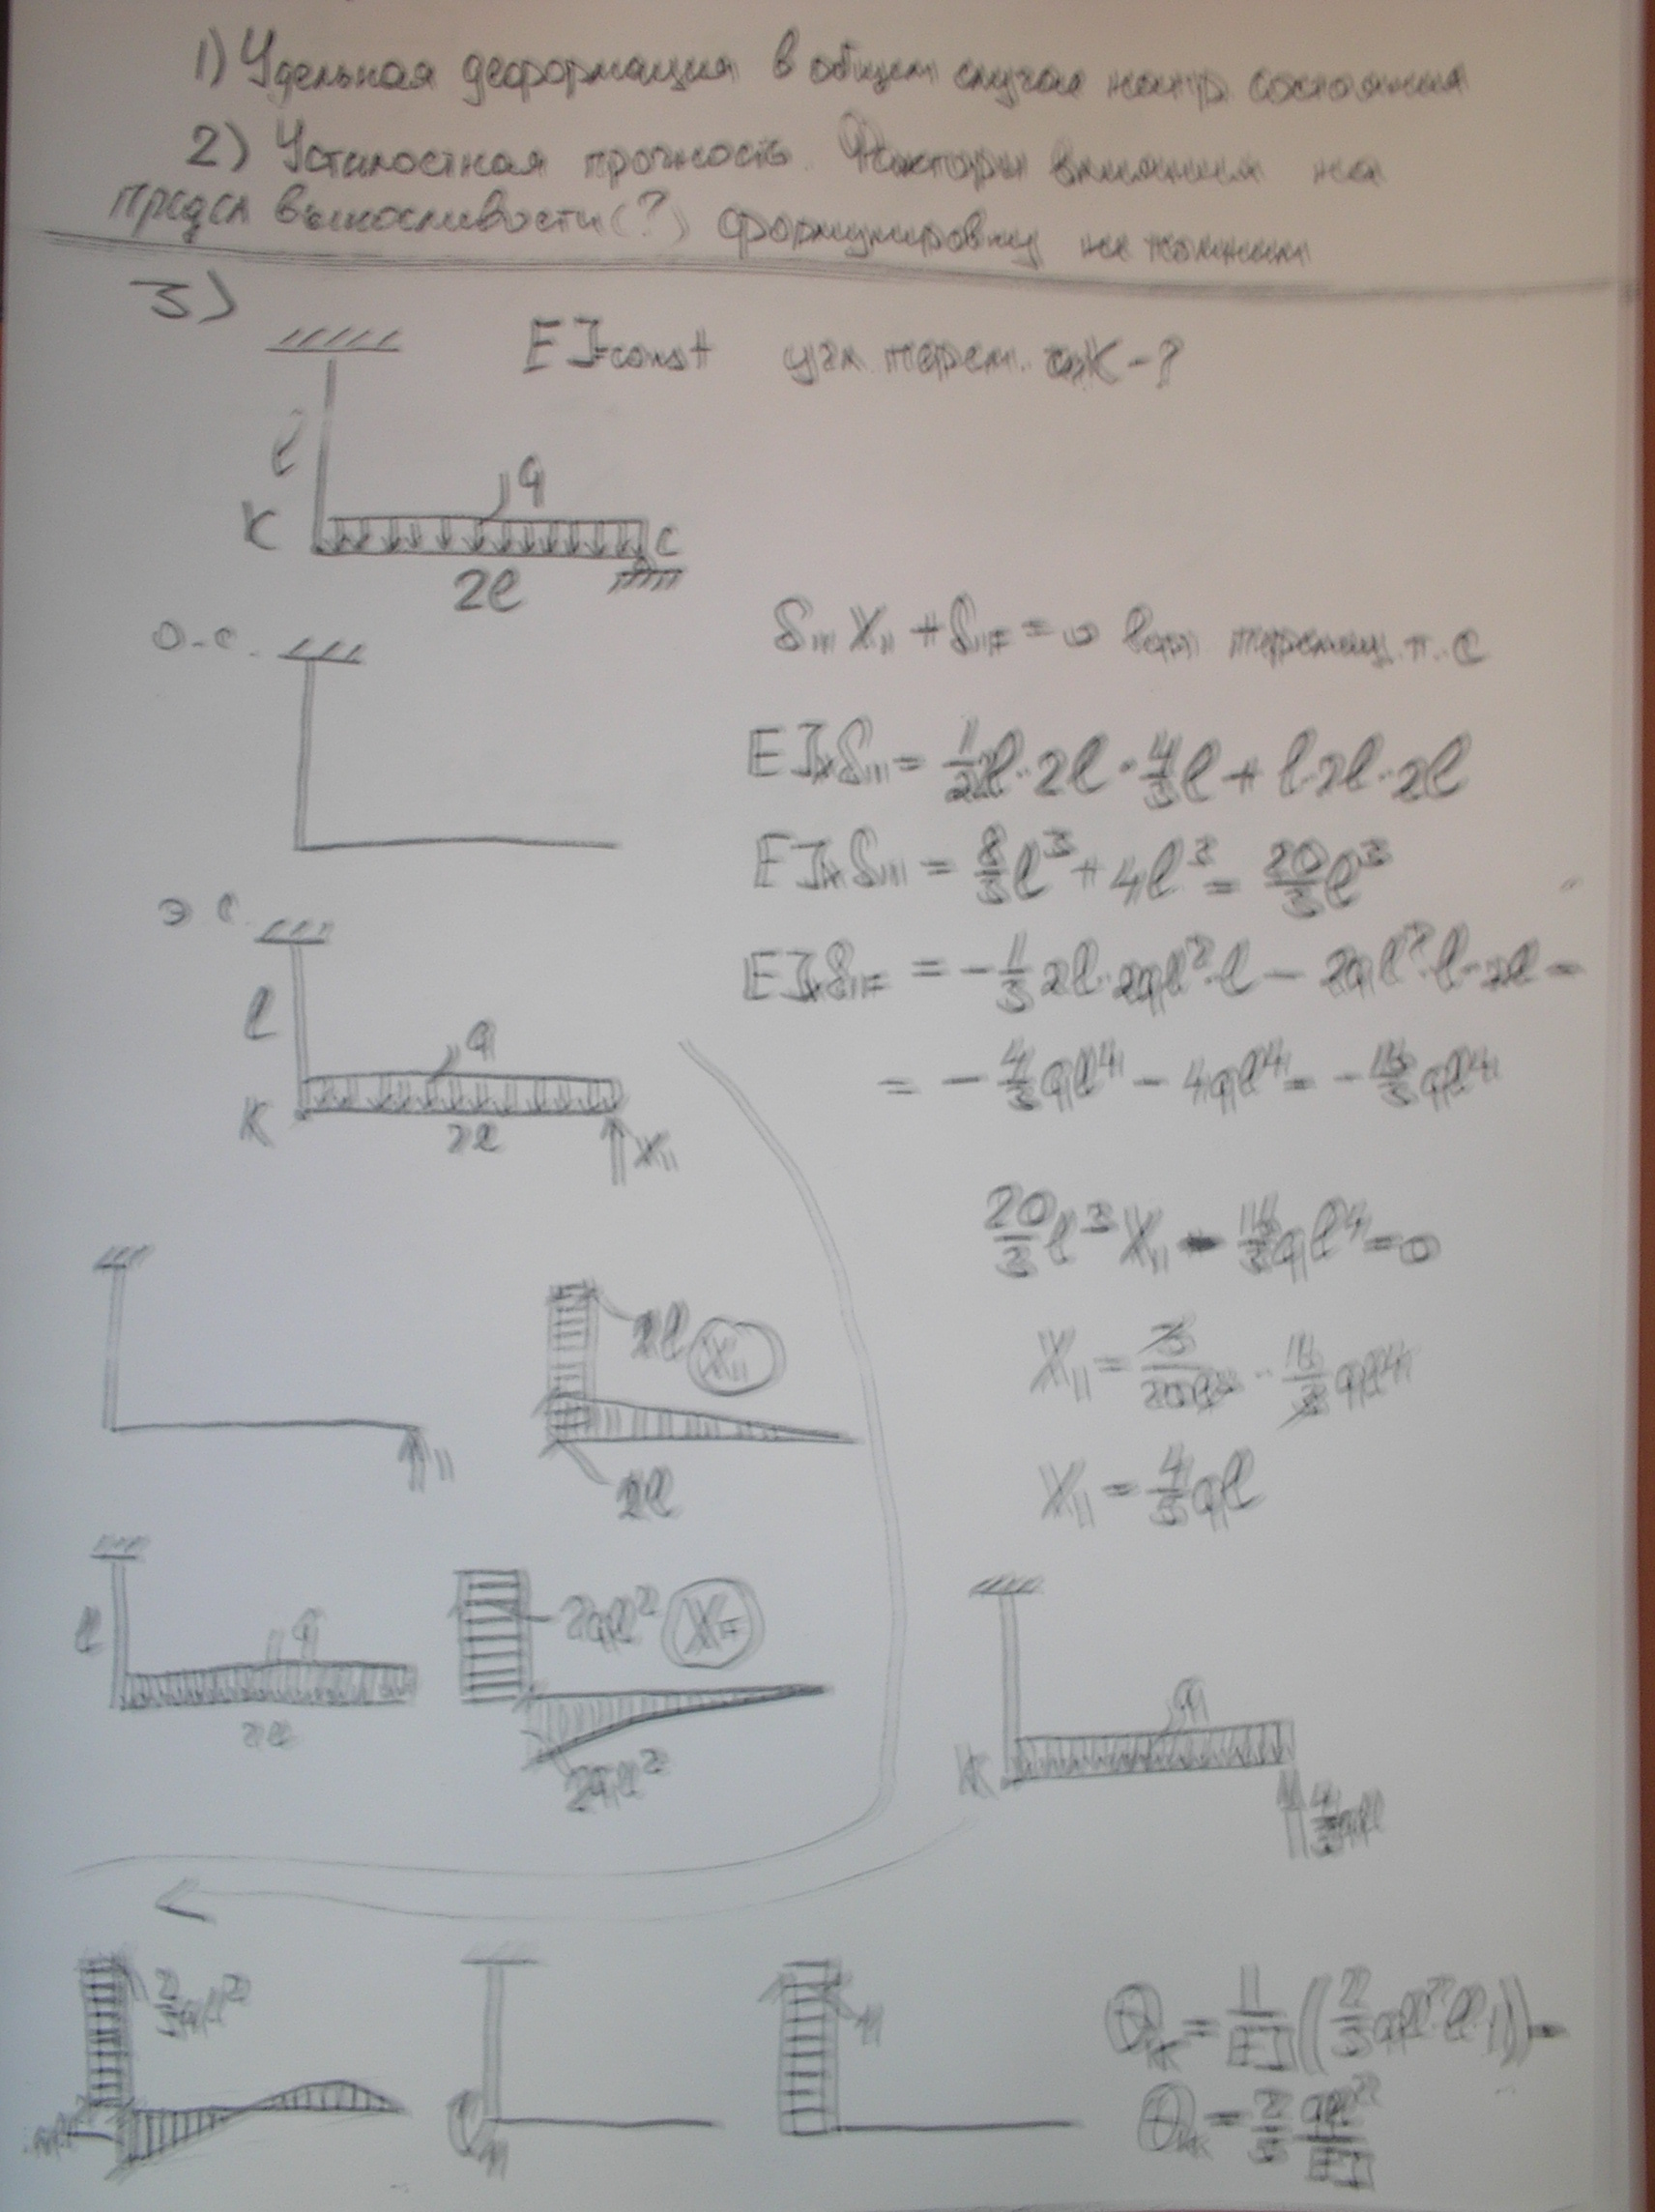 1) Удельная деформация в общем случае напр. состояния
2) Усталостная прочность. Факторы влияния на
предел выносливости(?) формулировку не помним
3)
EJ=const угл. перем. K-?
l
q
K
C
2l
о.с.
δ₁₁X₁ + δ₁F = 0 верт. перемещ. т. C
EJₓδ₁₁ = 1/2 2l·2l·4/3l + l·2l·2l
EJₓδ₁₁ = 8/3l³ + 4l³ = 20/3l³
э.с.
EJₓδ₁F = -1/3 2l·2ql²·l - 2ql²·l·2l =
= -4/3ql⁴ - 4ql⁴ = -16/3ql⁴
l
q
K
2l
X₁
20/3l³X₁ - 16/3ql⁴ = 0
2l
X₁
X₁ = 3/20l³ · 16/3ql⁴
1
2l
X₁ = 4/5ql
l
q
2l
2ql²
X_F
2ql²
q
K
4/5ql
2/5ql²
1
1
θ_K = 1/EJ(2/5ql²·l·1) =
θ_K = 2/5